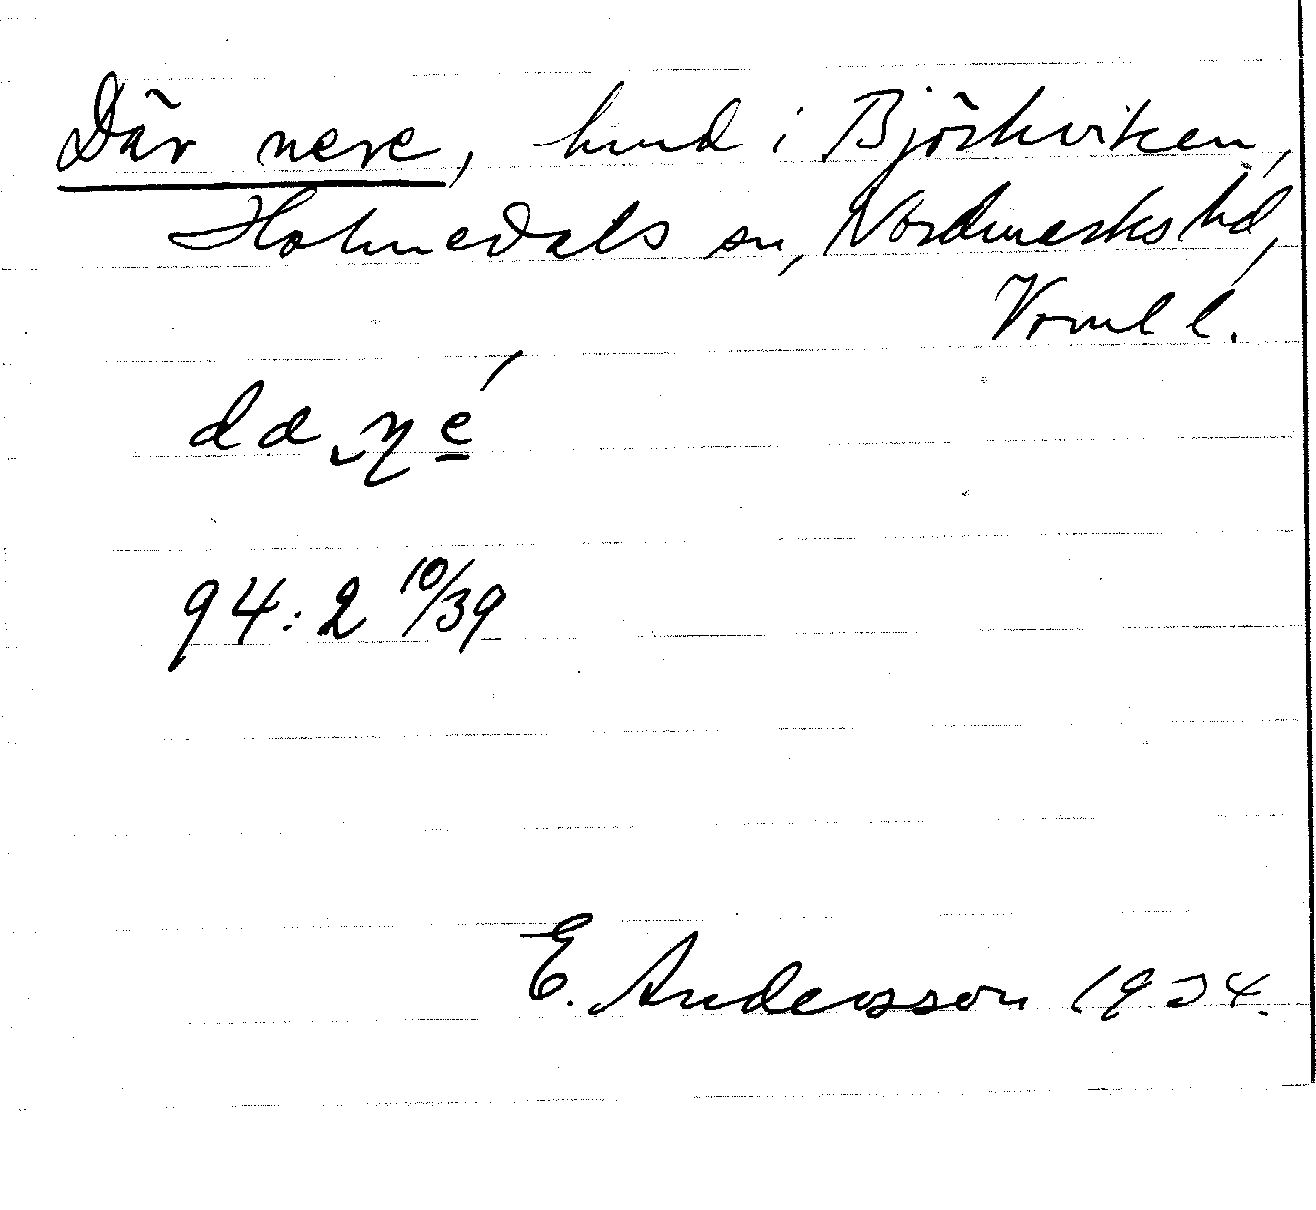 Där nere, hmd i Björkviken,
Holmedals sn, Nordmarks hd,
Vrml l.
94:2 10/39
E. Andersson 1924.